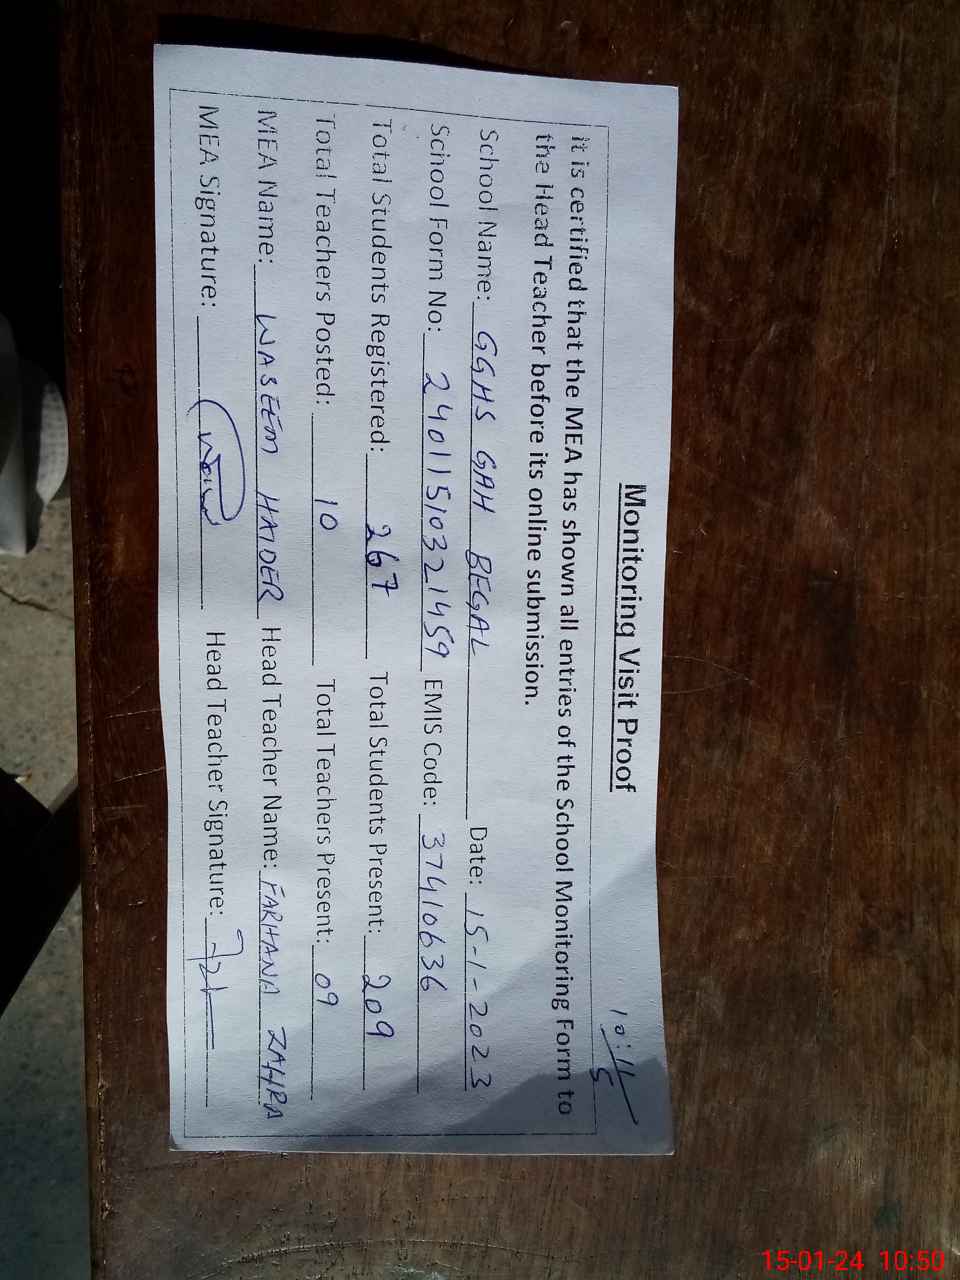 Monitoring Visit Proof
It is certified that the MEA has shown all entries of the School Monitoring Form to
the Head Teacher before its online submission.
School Name: GGHS GAH BEGAL Date: 15-1-2023
School Form No: 24011510321459 EMIS Code: 37410636
Total Students Registered: 267 Total Students Present: 209
Total Teachers Posted: 10 Total Teachers Present: 09
MEA Name: WASEEM HAIDER Head Teacher Name: FARHANA ZAHRA
MEA Signature: Head Teacher Signature:
15-01-24 10:50